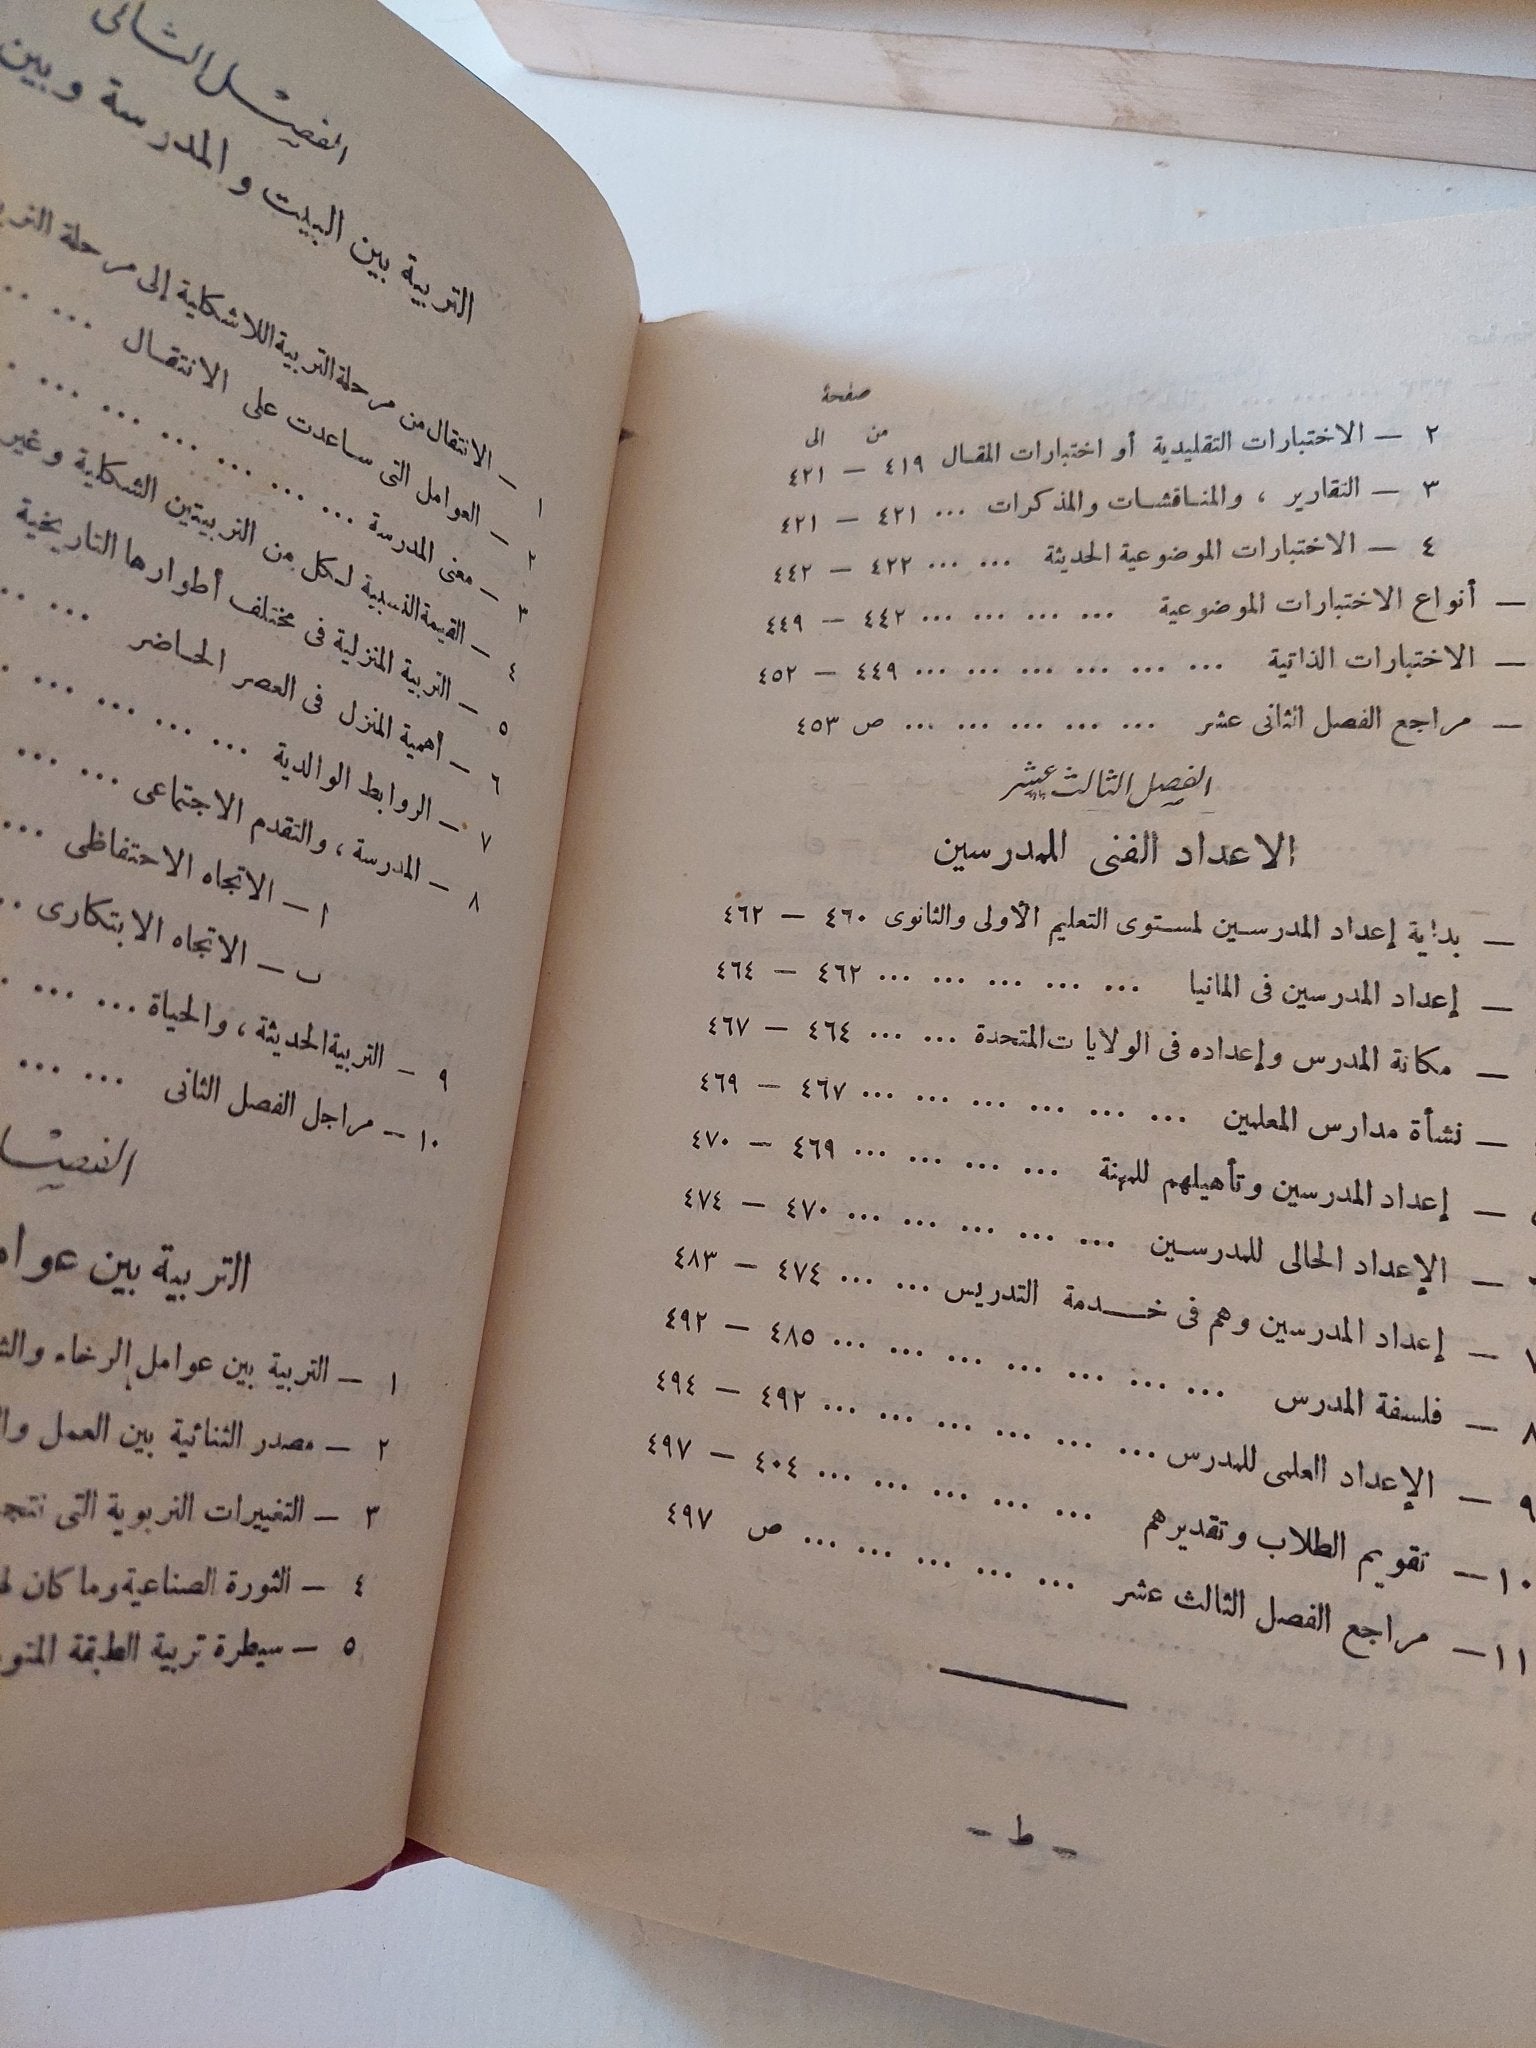 صفحة
من الى
٢ — الاختبارات التقليدية أو اختبارات المقال ٤١٩ — ٤٢١
٣ — التقارير ، والمناقشات والمذكرات ... ٤٢١ — ٤٢١
٤ — الاختبارات الموضوعية الحديثة ... ... ٤٢٢ — ٤٤٢
— أنواع الاختبارات الموضوعية ... ... ... ... ٤٤٢ — ٤٤٩
— الاختبارات الذاتية ... ... ... ... ... ... ٤٤٩ — ٤٥٢
— مراجع الفصل الثانى عشر ... ... ... ... ... ص ٤٥٣
الفصل الثالث عشر
الاعداد الفنى للمدرسين
— بداية إعداد المدرسين لمستوى التعليم الأولى والثانوى ٤٦٠ — ٤٦٢
— إعداد المدرسين فى المانيا ... ... ... ... ... ٤٦٢ — ٤٦٤
— مكانة المدرس وإعداده فى الولايا ت المتحدة ... ... ٤٦٤ — ٤٦٧
— نشأة مدارس المعلمين ... ... ... ... ... ... ٤٦٧ — ٤٦٩
— إعداد المدرسين وتأهيلهم للمهنة ... ... ... ... ٤٦٩ — ٤٧٠
— الإعداد الحالى للمدرسين ... ... ... ... ... ٤٧٠ — ٤٧٤
٧ — إعداد المدرسين وهم فى خدمة التدريس ... ... ٤٧٤ — ٤٨٣
٨ — فلسفة المدرس ... ... ... ... ... ... ... ٤٨٥ — ٤٩٢
٩ — الإعداد العلمى للمدرس ... ... ... ... ... ... ٤٩٢ — ٤٩٤
١٠ — تقويم الطلاب وتقديرهم ... ... ... ... ... ٤٠٤ — ٤٩٧
١١ — مراجع الفصل الثالث عشر ... ... ... ... ... ص ٤٩٧
— ط —
الفصل الثانى
التربية بين البيت والمدرسة وبين
١ — الانتقال من مرحلة التربية اللاشكلية إلى مرحلة
٢ — العوامل التى ساعدت على الانتقال ... ...
٣ — معنى المدرسة ... ... ... ... ... ...
٤ — القيمة النسبية لكل من التربيتين الشكلية وغير
٥ — التربية المنزلية فى مختلف أطوارها التاريخية
٦ — أهمية المنزل فى العصر الحاضر ... ...
٧ — الروابط الوالدية ... ... ... ... ...
٨ — المدرسة ، والتقدم الاجتماعى ... ...
ا — الاتجاه الاحتفاظى ...
ب — الاتجاه الابتكارى ...
٩ — التربية الحديثة ، والحياة ... ... ...
١٠ — مراجل الفصل الثانى ... ...
التربية بين
١ — التربية بين عوامل الرخاء
٢ — مصدر الثنائية بين العمل
٣ — التغييرات التربوية التى
٤ — الثورة الصناعية وما كان
٥ — سيطرة تربية الطبقة